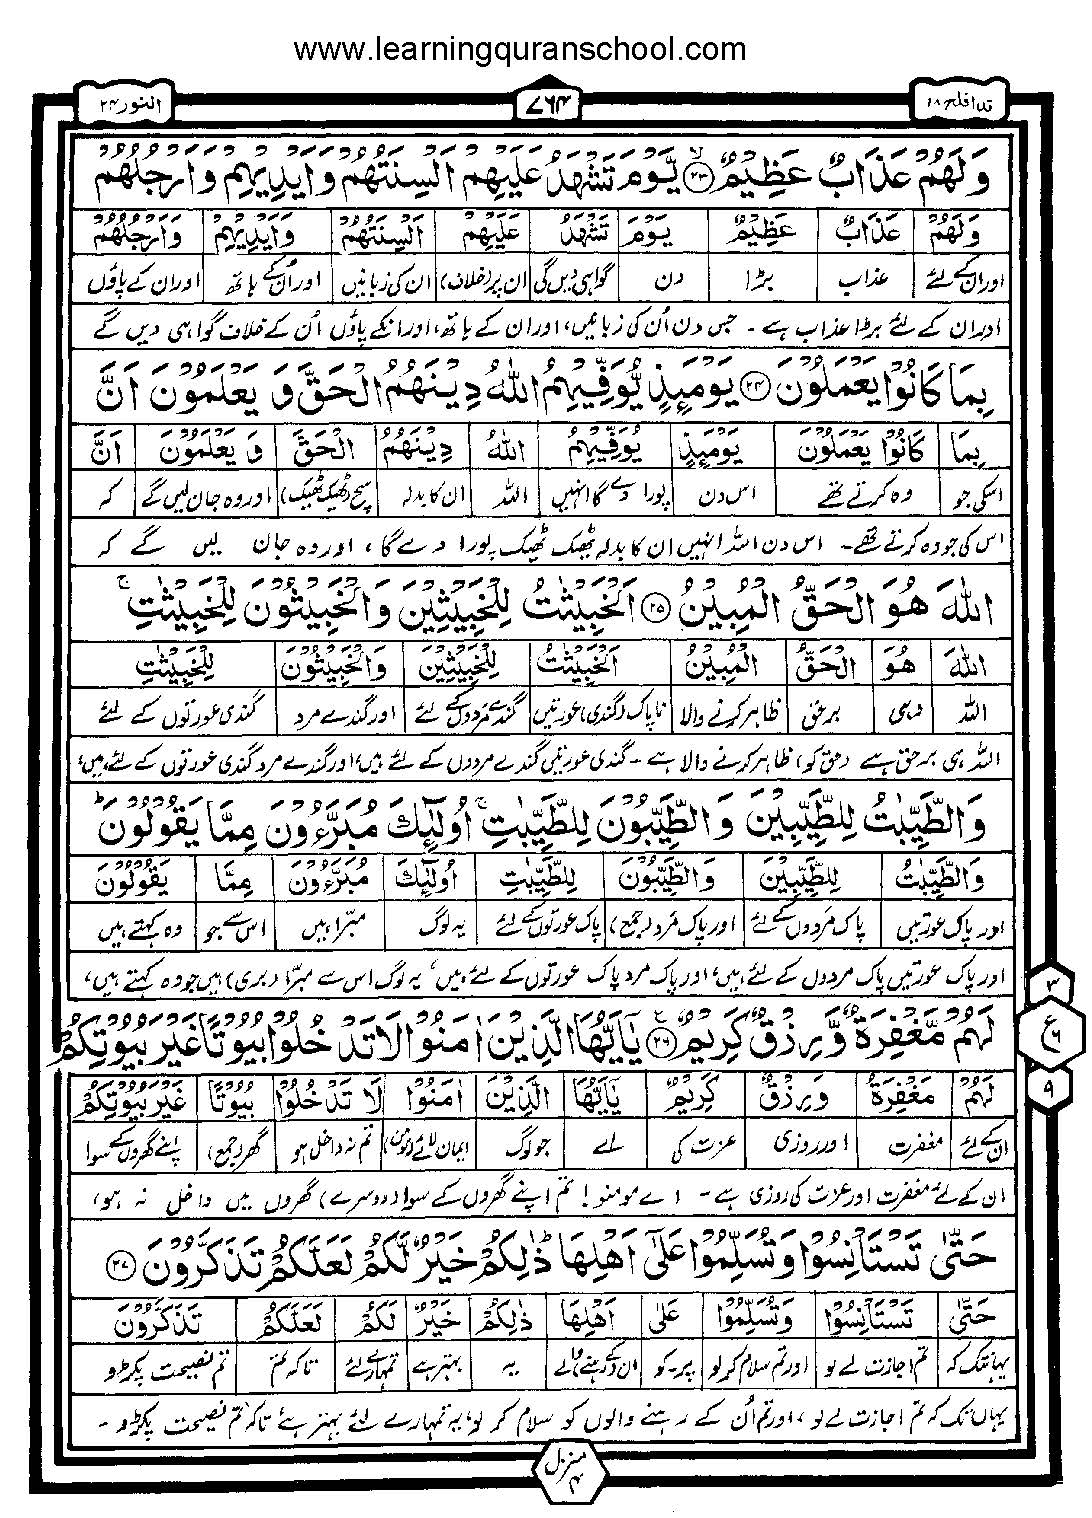 www.learningquranschool.com
قد افلح ۱۸ ۷۶۴ النور ۲۴
وَلَهُمْ عَذَابٌ عَظِيْمٌ ۙ﴿۲۳﴾ يَّوْمَ تَشْهَدُ عَلَيْهِمْ اَلْسِنَتُهُمْ وَاَيْدِيْهِمْ وَاَرْجُلُهُمْ
وَلَهُمْ عَذَابٌ عَظِيْمٌ يَوْمَ تَشْهَدُ عَلَيْهِمْ اَلْسِنَتُهُمْ وَاَيْدِيْهِمْ وَاَرْجُلُهُمْ
اور ان کے لئے عذاب بڑا دن گواہی دیں گی ان پر (خلاف) ان کی زبانیں اور ان کے ہاتھ اور ان کے پاؤں
اور ان کے لئے بڑا عذاب ہے ۔ جس دن اُن کی زبانیں، اور ان کے ہاتھ، اور انکے پاؤں اُن کے خلاف گواہی دیں گے
بِمَا كَانُوْا يَعْمَلُوْنَ ﴿۲۴﴾ يَوْمَئِذٍ يُّوَفِّيْهِمُ اللّٰهُ دِيْنَهُمُ الْحَقَّ وَ يَعْلَمُوْنَ اَنَّ
بِمَا كَانُوْا يَعْمَلُوْنَ يَوْمَئِذٍ يُوَفِّيْهِمُ اللّٰهُ دِيْنَهُمُ الْحَقَّ وَ يَعْلَمُوْنَ اَنَّ
اسکی جو وہ کرتے تھے اس دن پورا دے گا انہیں اللہ ان کا بدلہ سچ (ٹھیک ٹھیک) اور وہ جان لیں گے کہ
اس کی جو وہ کرتے تھے۔ اس دن اللہ انہیں ان کا بدلہ ٹھیک ٹھیک پورا دے گا، اور وہ جان لیں گے کہ
اللّٰهَ هُوَ الْحَقُّ الْمُبِيْنُ ﴿۲۵﴾ اَلْخَبِيْثٰتُ لِلْخَبِيْثِيْنَ وَالْخَبِيْثُوْنَ لِلْخَبِيْثٰتِ ۚ
اللّٰهَ هُوَ الْحَقُّ الْمُبِيْنُ اَلْخَبِيْثٰتُ لِلْخَبِيْثِيْنَ وَالْخَبِيْثُوْنَ لِلْخَبِيْثٰتِ
اللہ وہی برحق ظاہر کرنے والا ناپاک (گندی) عورتیں گندے مردوں کے لئے اور گندے مرد گندی عورتوں کے لئے
اللہ ہی برحق ہے (حق کو) ظاہر کرنے والا ہے ۔ گندی عورتیں گندے مردوں کے لئے ہیں، اور گندے مرد گندی عورتوں کے لئے ہیں،
وَالطَّيِّبٰتُ لِلطَّيِّبِيْنَ وَالطَّيِّبُوْنَ لِلطَّيِّبٰتِ ۚ اُولٰٓئِكَ مُبَرَّءُوْنَ مِمَّا يَقُوْلُوْنَ ؕ
وَالطَّيِّبٰتُ لِلطَّيِّبِيْنَ وَالطَّيِّبُوْنَ لِلطَّيِّبٰتِ اُولٰٓئِكَ مُبَرَّءُوْنَ مِمَّا يَقُوْلُوْنَ
اور پاک عورتیں پاک مردوں کے لئے اور پاک مرد (جمع) پاک عورتوں کے لئے یہ لوگ مبرّا ہیں اس سے جو وہ کہتے ہیں
اور پاک عورتیں پاک مردوں کے لئے ہیں، اور پاک مرد پاک عورتوں کے لئے ہیں، یہ لوگ اس سے مبرّا (بری) ہیں جو وہ کہتے ہیں،
۳
لَهُمْ مَّغْفِرَةٌ وَّرِزْقٌ كَرِيْمٌ ﴿۲۶﴾ۧ يٰۤاَيُّهَا الَّذِيْنَ اٰمَنُوْا لَا تَدْخُلُوْا بُيُوْتًا غَيْرَ بُيُوْتِكُمْ
ع ۶
لَهُمْ مَغْفِرَةٌ وَّرِزْقٌ كَرِيْمٌ يٰۤاَيُّهَا الَّذِيْنَ اٰمَنُوْا لَا تَدْخُلُوْا بُيُوْتًا غَيْرَ بُيُوْتِكُمْ
۹
ان کے لئے مغفرت اور روزی عزت کی اے جو لوگ ایمان لائے (مومن) تم نہ داخل ہو گھر (جمع) اپنے گھروں کے سوا
ان کے لئے مغفرت اور عزت کی روزی ہے ۔ اے مومنو! تم اپنے گھروں کے سوا (دوسرے) گھروں میں داخل نہ ہو،
حَتّٰى تَسْتَاْنِسُوْا وَتُسَلِّمُوْا عَلٰٓى اَهْلِهَا ؕ ذٰلِكُمْ خَيْرٌ لَّكُمْ لَعَلَّكُمْ تَذَكَّرُوْنَ ﴿۲۷﴾
حَتّٰى تَسْتَاْنِسُوْا وَتُسَلِّمُوْا عَلٰى اَهْلِهَا ذٰلِكُمْ خَيْرٌ لَكُمْ لَعَلَّكُمْ تَذَكَّرُوْنَ
یہانتک کہ تم اجازت لے لو اور تم سلام کر لو پر۔ کو ان کے رہنے والے یہ بہتر ہے تمہارے لئے تاکہ تم تم نصیحت پکڑو
یہاں تک کہ تم اجازت لے لو، اور تم اُن کے رہنے والوں کو سلام کر لو، یہ تمہارے لئے بہتر ہے تاکہ تم نصیحت پکڑو ۔
منزل ۴